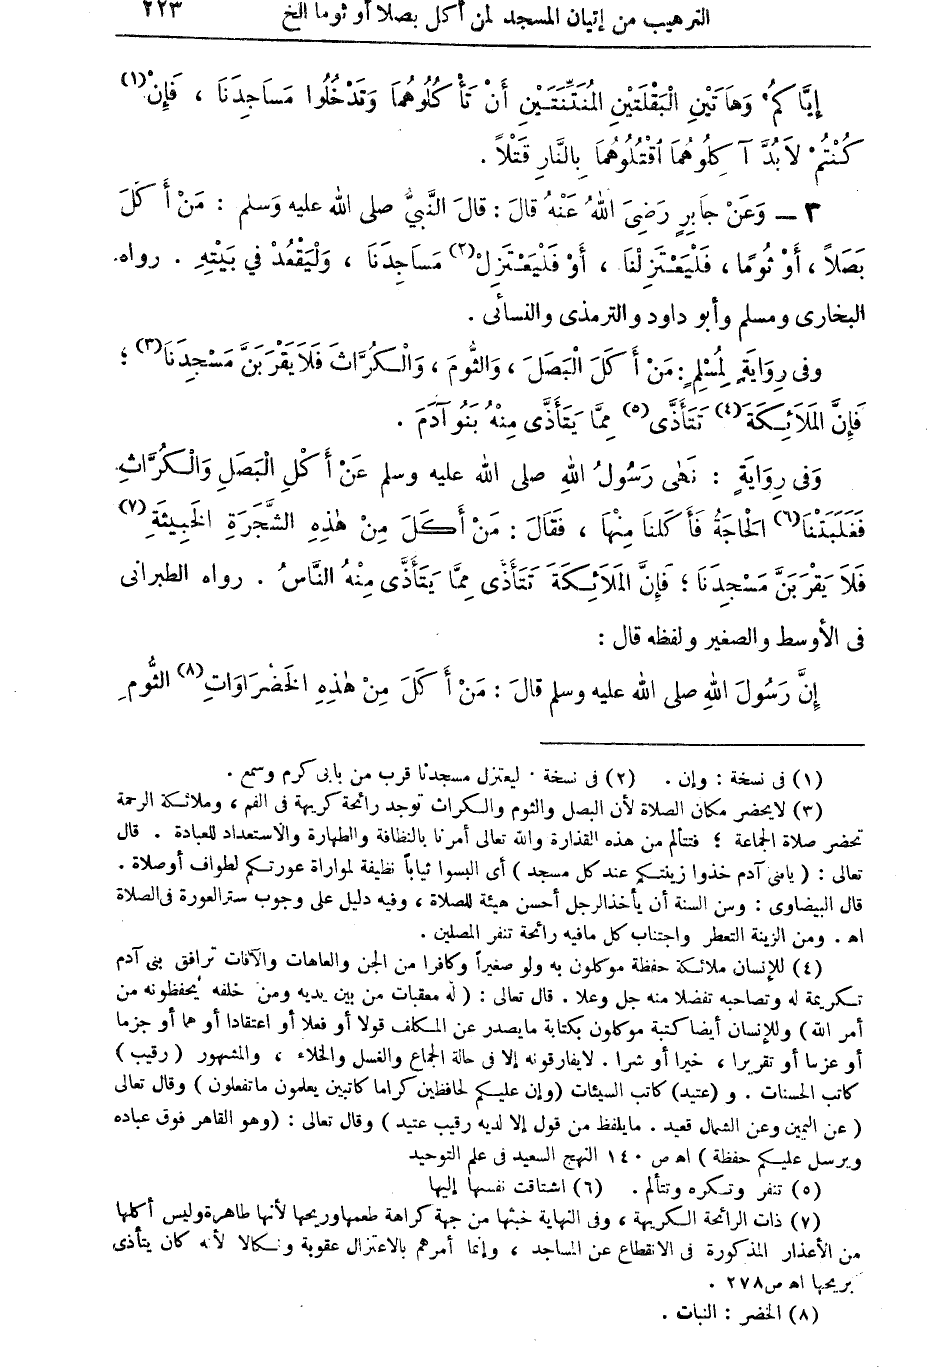 الترهيب من إتيان المسجد لمن أكل بصلا أو ثوما الخ ٢٢٣
إِيَّاكُمْ وَهَاتَيْنِ الْبَقْلَتَيْنِ الْمُنْتِنَتَيْنِ أَنْ تَأْكُلُوهُمَا وَتَدْخُلُوا مَسَاجِدَنَا ، فَإِنْ(١)
كُنْتُمْ لَابُدَّ آكِلُوهُمَا اقْتُلُوهُمَا بِالنَّارِ قَتْلاً .
٣ ــ وَعَنْ جَابِرٍ رَضِيَ اللهُ عَنْهُ قالَ : قالَ النَّبِيُّ صلى الله عليه وَسلم : مَنْ أَكَلَ
بَصَلاً ، أَوْ ثُومًا ، فَلْيَعْتَزِلْنَا ، أَوْ فَلْيَعْتَزِلْ(٢) مَسَاجِدَنَا ، وَلْيَقْعُدْ فِي بَيْتِهِ . رواه
البخارى ومسلم وأبو داود والترمذى والنسائى .
وفى رِوَايَةٍ لِمُسْلِمٍ : مَنْ أَكَلَ الْبَصَلَ ، وَالثُّومَ ، وَالْكُرَّاثَ فَلَا يَقْرَبَنَّ مَسْجِدَنَا(٣) ؛
فَإِنَّ الْمَلَائِكَةَ(٤) تَتَأَذَّى(٥) مِمَّا يَتَأَذَّى مِنْهُ بَنُو آدَمَ .
وَفى رِوَايَةٍ : نَهَى رَسُولُ اللهِ صلى الله عليه وسلم عَنْ أَكْلِ الْبَصَلِ وَالْكُرَّاثِ
فَغَلَبَتْنَا(٦) الْحَاجَةُ فَأَكَلْنَا مِنْهَا ، فَقَالَ : مَنْ أَكَلَ مِنْ هٰذِهِ الشَّجَرَةِ الْخَبِيثَةِ(٧)
فَلَا يَقْرَبَنَّ مَسْجِدَنَا ؛ فَإِنَّ الْمَلَائِكَةَ تَتَأَذَّى مِمَّا يَتَأَذَّى مِنْهُ النَّاسُ . رواه الطبرانى
فى الأوسط والصغير ولفظه قال :
إِنَّ رَسُولَ اللهِ صلى الله عليه وسلم قالَ : مَنْ أَكَلَ مِنْ هٰذِهِ الْخَضْرَاوَاتِ(٨) الثُّومِ
(١) فى نسخة : وإن . (٢) فى نسخة : ليعتزل مسجدنا قرب من بابى كرم وسمع .
(٣) لايحضر مكان الصلاة لأن البصل والثوم والكراث توجد رائحة كريهة فى الفم ، وملائكة الرحمة
تحضر صلاة الجماعة ؛ فتتألم من هذه القذارة والله تعالى أمرنا بالنظافة والطهارة والاستعداد للعبادة . قال
تعالى : ( يابنى آدم خذوا زينتكم عند كل مسجد ) أى البسوا ثياباً نظيفة لمواراة عورتكم لطواف أوصلاة .
قال البيضاوى : ومن السنة أن يأخذالرجل أحسن هيئة للصلاة ، وفيه دليل على وجوب سترالعورة فىالصلاة
اه . ومن الزينة التعطر واجتناب كل مافيه رائحة تنفر المصلين .
(٤) للإنسان ملائكة حفظة موكلون به ولو صغيراً وكافرا من الجن والعاهات والآفات ترافق بنى آدم
تكريمة له وتصاحبه تفضلا منه جل وعلا . قال تعالى : ( له معقبات من بين يديه ومن خلفه يحفظونه من
أمر الله ) وللإنسان أيضا كتبة موكلون بكتابة مايصدر عن المكلف قولا أو فعلا أو اعتقادا أو هما أو جزما
أو عزما أو تقريرا ، خيرا أو شرا . لايفارقونه إلا فى حالة الجماع والغسل والخلاء ، والمشهور ( رقيب )
كاتب الحسنات . و (عتيد) كاتب السيئات (وإن عليكم لحافظين كراما كاتبين يعلمون ماتفعلون ) وقال تعالى
( عن اليمين وعن الشمال قعيد . مايلفظ من قول إلا لديه رقيب عتيد ) وقال تعالى : (وهو القاهر فوق عباده
ويرسل عليكم حفظة ) اه ص ١٤٠ النهج السعيد فى علم التوحيد
(٥) تنفر وتكره وتتألم . (٦) اشتاقت نفسها إليها
(٧) ذات الرائحة الكريهة ، وفى النهاية خبثها من جهة كراهة طعمها وريحها لأنها طاهرة وليس أكلها
من الأعذار المذكورة فى الانقطاع عن المساجد ، وإنما أمرهم بالاعتزال عقوبة ونكالا لأنه كان يتأذى
بريحها اه ص ٢٧٨ .
(٨) الخضر : النبات .